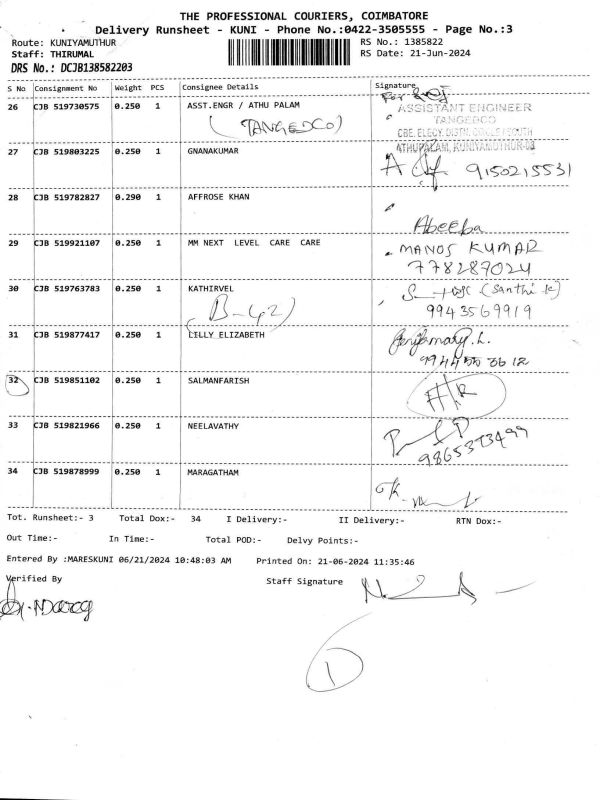 THE PROFESSIONAL COURIERS, COIMBATORE
Delivery Runsheet - KUNI - Phone No.:0422-3505555 - Page No.:3
Route: KUNIYAMUTHUR
RS No.: 1385822
Staff: THIRUMAL
RS Date: 21-Jun-2024
DRS No.: DCJB138582203
S No Consignment No Weight PCS Consignee Details Signature
26 CJB 519730575 0.250 1 ASST.ENGR / ATHU PALAM
(TANGEDCO)
For
ASSISTANT ENGINEER
TANGEDCO
ATHUPALAM, KUNIYAMUTHUR-08
27 CJB 519803225 0.250 1 GNANAKUMAR
9150215531
28 CJB 519782827 0.290 1 AFFROSE KHAN
Abeeba
29 CJB 519921107 0.250 1 MM NEXT LEVEL CARE CARE
MANOS KUMAR
778287024
30 CJB 519763783 0.250 1 KATHIRVEL
(Santhi K)
9943569919
31 CJB 519877417 0.250 1 LILLY ELIZABETH
32 CJB 519851102 0.250 1 SALMANFARISH
33 CJB 519821966 0.250 1 NEELAVATHY
34 CJB 519878999 0.250 1 MARAGATHAM
Tot. Runsheet:- 3 Total Dox:- 34 I Delivery:- II Delivery:- RTN Dox:-
Out Time:- In Time:- Total POD:- Delvy Points:-
Entered By :MARESKUNI 06/21/2024 10:48:03 AM Printed On: 21-06-2024 11:35:46
Verified By Staff Signature
1